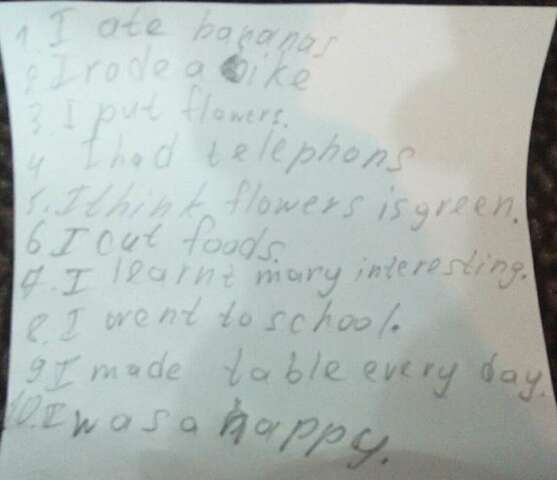 1. I ate bananas
2 I rode a bike
3. I put flowers.
4 I had telephons
5. I think flowers is green.
6 I cut foods.
7. I learnt mary interesting.
8. I went to school.
9 I made table every day.
10. I was a happy.